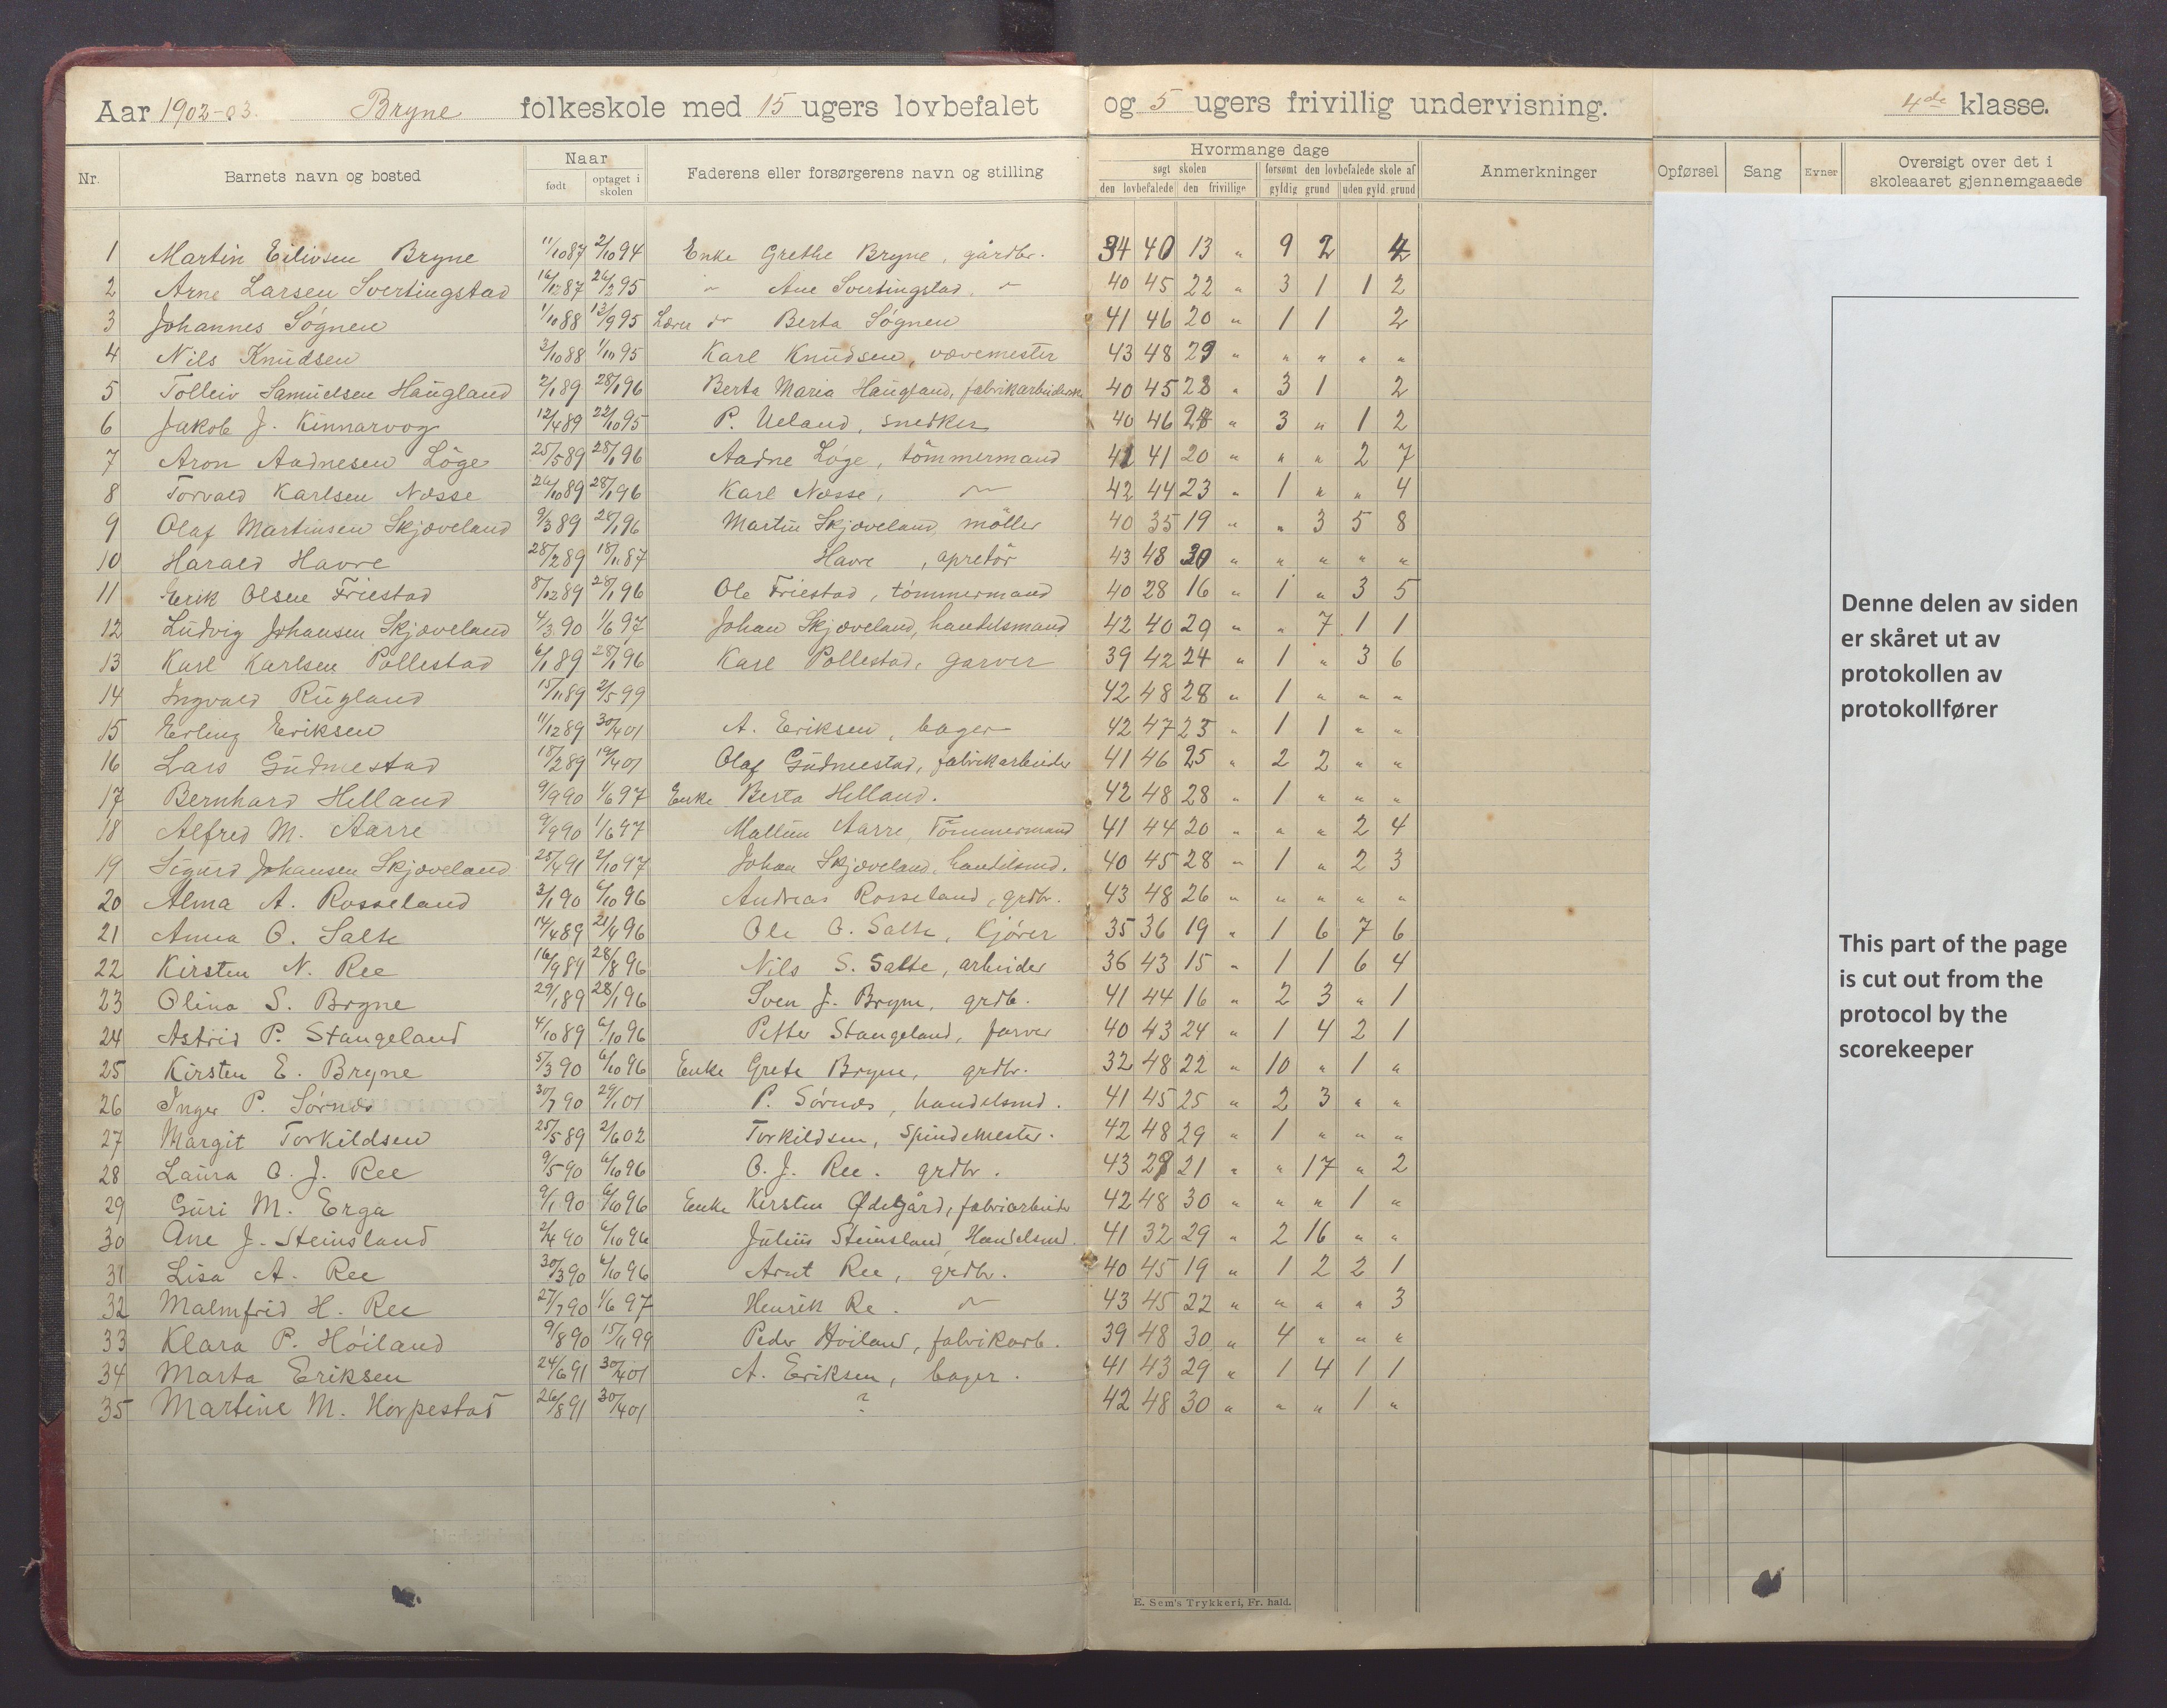 Aar 1902-03. Bryne folkeskole med 15 ugers lovbefalet og 5 ugers frivillig undervisning. 4de klasse.
Nr. Barnets navn og bosted Naar født optaget i skolen Faderens eller forsørgerens navn og stilling Hvormange dage søgt skolen den lovbefalede den frivillige forsømt den lovbefalede skole af gyldig grund uden gyld. grund Anmerkninger Opførsel Sang Evner Oversigt over det i skoleaaret gjennemgaaede
1 Martin Eilivsen Bryne 11/10 87 2/10 94 Enke Grethe Bryne, gårdbr. 34 40 13 " 9 2 4
2 Arne Larsen Svertingstad 16/12 87 26/2 95 " Ane Svertingstad " 40 45 22 " 3 1 1 2
3 Johannes Søgnen 1/10 88 13/9 95 Berta Søgnen 41 46 20 " 1 1 2
4 Nils Knudsen 3/10 88 1/10 95 Karl Knudsen, vævemester 43 48 29 " " " " "
5 Tolleiv Samuelsen Haugland 2/1 89 28/1 96 Berta Maria Haugland, fabrikarbeiderske 40 45 28 " 3 1 2
6 Jakob J. Kinnarvog 12/4 89 22/10 95 P. Ueland, snedker 40 46 " 3 " 1 2
7 Aron Aadnesen Löge 25/5 89 28/1 96 Aadne Löge, tömmermand 41 41 20 " " " 2 7
8 Torvald Karlsen Næsse 26/10 89 28/1 96 Karl Næsse, " 42 44 23 " 1 " " 4
9 Olaf Martinsen Skjæveland 9/3 89 28/1 96 Martin Skjæveland möller 40 35 19 " " 3 5 8
10 Harald Havre 28/2 89 18/11 87 Havre, apretör 43 48 30 " " " " "
11 Erik Olsen Friestad 8/12 89 28/1 96 Ole Friestad, tömmermand 40 28 16 " 1 " 3 5
12 Ludvig Johansen Skjæveland 4/3 90 1/6 97 Johan Skjæveland, handelsmand 42 40 29 " " 7 1 1
13 Karl Karlsen Pollestad 6/1 89 28/1 96 Karl Pollestad, garver 39 42 24 " 1 " 3 6
14 Ingvald Rugland 15/11 89 2/5 99 42 48 28 " 1 " " "
15 Erling Eriksen 11/12 89 30/4 01 A. Eriksen, bager 42 47 23 " 1 1 " "
16 Lars Gudmestad 18/2 89 19/4 01 Olaf Gudmestad, fabrikarbeider 41 46 25 " 2 2 " "
17 Bernhard Helland 9/9 90 1/6 97 Enke Berta Helland. 42 48 28 " 1 " " "
18 Alfred M. Aarre 9/9 90 1/6 97 Aarre, Tömmermand 41 44 20 " " " 2 4
19 Sigurd Johansen Skjæveland 25/4 91 2/10 97 Johan Skjæveland, handelsmd. 40 45 28 " 1 " 2 3
20 Alma A. Rosseland 3/1 90 6/10 96 Andreas Rosseland, grdbr. 43 48 26 " " " " "
21 Anna O. Salte 14/4 89 21/4 96 Ole O. Salte, kjörer 35 36 19 " 1 6 7 6
22 Kirsten N. Ree 16/9 89 28/8 96 Nils S. Salte, arbeider 36 43 15 " 1 1 6 4
23 Olina S. Bryne 29/1 89 28/1 96 Sven J. Bryne, grdb. 41 44 16 " 2 3 " 1
24 Astrid P. Stangeland 4/10 89 6/10 96 Petter Stangeland, farver 40 43 24 " 1 4 2 1
25 Kirsten E. Bryne 5/3 90 6/10 96 Enke Grete Bryne, grdbr. 32 48 22 " 10 " 1 "
26 Inger P. Sørnæs 30/7 90 29/1 01 P. Sørnæs, handelsmd. 41 45 25 " 2 3 " "
27 Margit Torkildsen 25/5 89 2/6 02 Torkildsen, Spindemester. 42 48 29 " 1 " " "
28 Laura O. J. Ree 9/5 90 6/10 96 O. J. Ree. grdbr. 43 28 21 " " 17 " 2
29 Guri M. Erga 9/1 90 6/10 96 Enke Kirsten Ødegård, fabriarbeider 42 48 30 " " " 1 "
30 Ane J. Steinsland 2/4 90 6/10 96 Julius Steinsland Handelsmd. 41 32 29 " 2 16 " "
31 Lisa A. Ree 30/3 90 6/10 96 Arnt Ree, grdbr. 40 45 19 " 1 2 2 1
32 Malmfrid H. Ree 27/7 90 1/6 97 Henrik Re. " 43 45 22 " " " " 3
33 Klara P. Høiland 9/8 90 15/11 99 Peder Høiland, fabrikarb. 39 48 30 " 4 " " "
34 Marta Eriksen 24/6 91 30/4 01 A. Eriksen, bager. 41 43 29 " 1 4 1 1
35 Martine M. Horpestad 26/8 91 30/4 01 ? 42 48 30 " " " 1 "
E. Sem's Trykkeri, Fr. hald.
Denne delen av siden
er skåret ut av
protokollen av
protokollfører
This part of the page
is cut out from the
protocol by the
scorekeeper